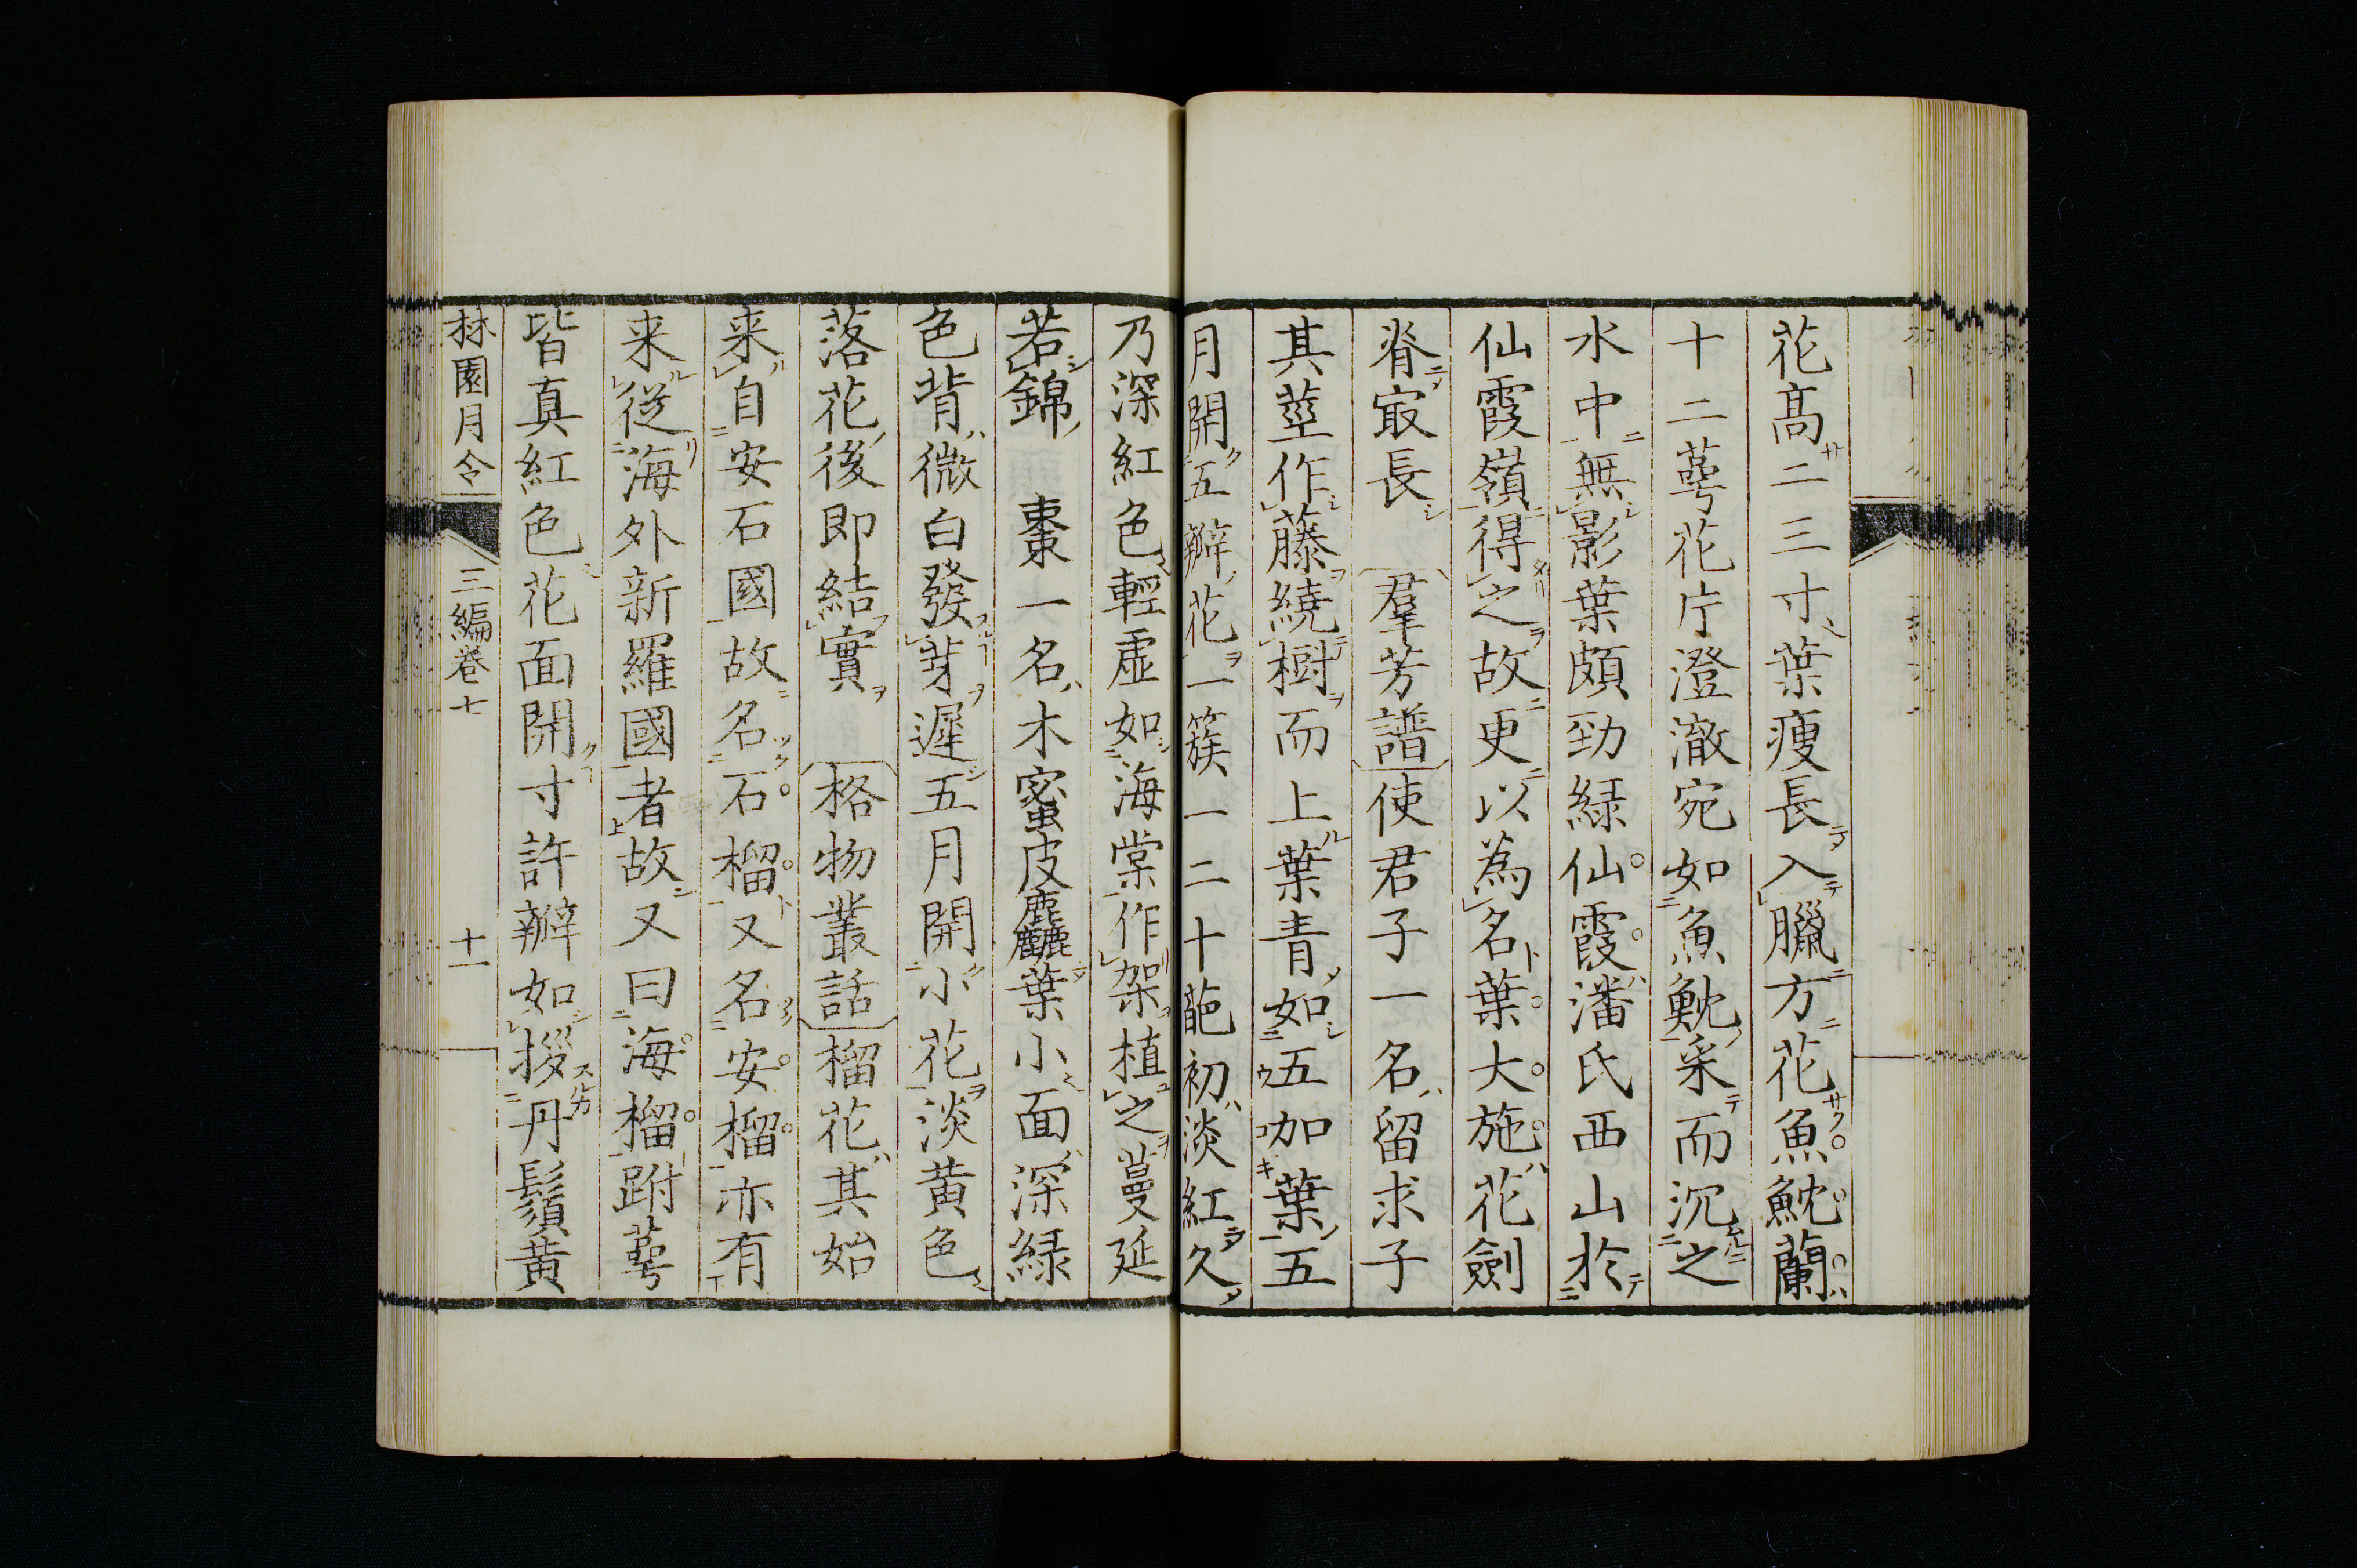 花高二三寸葉瘦長入臘方花魚魫蘭
十二萼花片澄澈宛如魚魫采而沉之
水中無影葉頗勁緑仙霞潘氏西山於
仙霞嶺得之故更以為名葉大施花劍
脊㝡長 羣芳譜使君子一名留求子
其莖作藤繞樹而上葉青如五咖葉五
月開五瓣花一簇一二十葩初淡紅久
乃深紅色輕虛如海棠作架植之蔓延
若錦 棗一名木蜜皮麁麤葉小面深緑
色背微白發芽遲五月開小花淡黄色
落花後即結實 格物叢話榴花其始
来自安石國故名石榴又名安榴亦有
来從海外新羅國者故又曰海榴跗萼
皆真紅色花面開寸許瓣如撥丹鬚黄
林園月令 三編卷七 十一